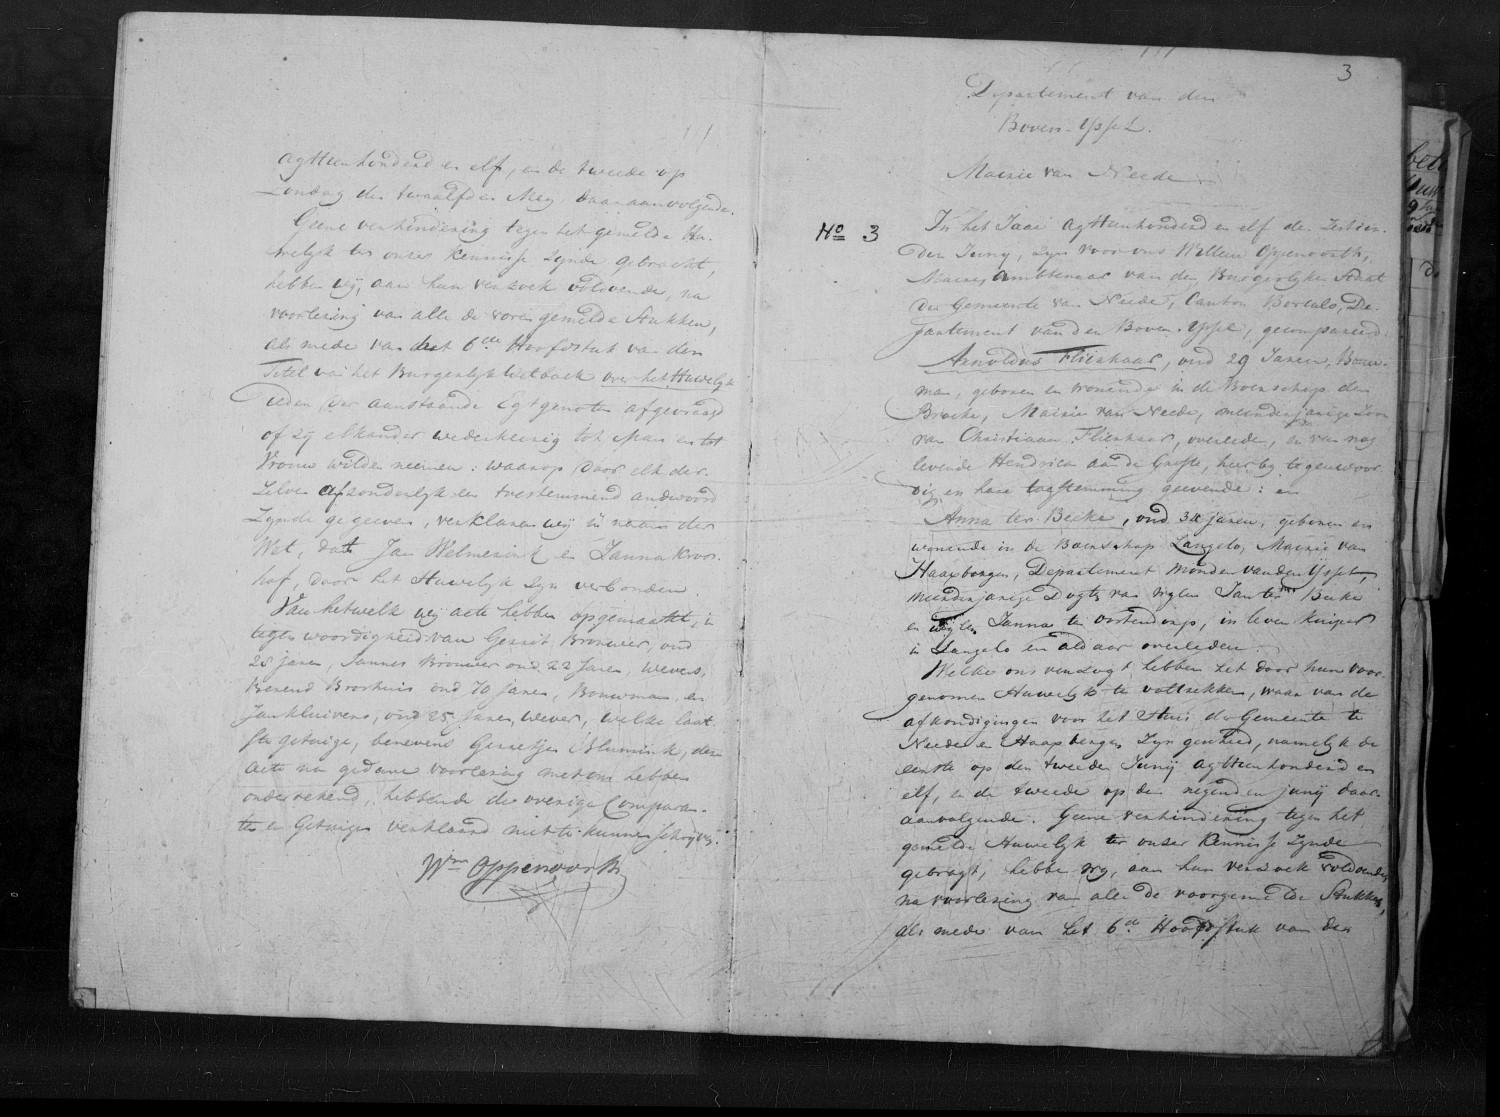 agtteenhonderd en elf, en de tweede op
Zondag den twaalfden Mey daaraanvolgende.
Geene verhindering tegen het gemelde Hu-
welyk ter onser kennisse zynde gebracht,
hebben wij, aan hun verzoek voldoende, na
voorlesing van alle de voren gemelde Stukken,
als mede van het 6de Hoofdstuk van den
Titel van het Burgerlyk Wetboek over het Huwelyk
Ieder der aanstaande Egtgenoten afgevraagd
of zy elkander wederkeerig tot Man en tot
Vrouw wilden neemen: waarop door elk der
zelve afzonderlyk een toestemmend andwoord
Zynde gegeeven, verklaren wij in naam der
Wet, dat Jan Welmerink en Janna Kroos-
hof, door het Huwelyk zyn verbonden.
Van hetwelk wij acte hebben opgemaakt, in
tegenwoordigheid van Gerrit Brouwer, oud
25 jaren, Jannes Brouwer oud 22 Jaren, wevers,
Berend Broshuis oud 70 jaren, Bouwman en
Jan kluivers, oud 25 Jaren, wever, welke laat-
ste getuige, benevens Gerretjen Blumink, den
acte na gedane voorlesing met ons hebben
ondertekend, hebbende de overige Comparan-
ten en Getuigen verklaard niet te kunnen schryven.
Wm Oppenoorth
3
Departement van den
Boven-Yssel.
Mairie van Neede
No 3
In het Jaar agtteenhonderd en elf den Zestien-
den Juny, zyn voor ons Willem Oppenoorth,
Maire, ambtenaar van den Burgerlyken Staat
der Gemeente van Neede, Canton Borculo, De-
partement van den Boven-Yssel, gecompareerd
Arnoldus Flierhaar, oud 29 Jaren, Bouw-
man, geboren en wonende in de Boerschap den
Broeke, Mairie van Neede, meerderjarige Zoon
van Christiaan Flierhaar, overleden, en van nog
levende Hendrica aan de Grofte, hier by tegenwoor-
dig en hare toestemming geevende: en
Anna ter Beeke, oud 34 jaren, geboren en
wonende in de Boerschap Langelo, Mairie van
Haaxbergen, Departement Monden van den Yssel,
meerderjarige Dogter van wylen Jan ter Beeke
en wylen Janna te vortendorp, in leven kuiper
in Langelo en aldaar overleden.
Welke ons verzogt hebben het door hun voor-
genomen Huwelyk te voltrekken, waar van de
afkondigingen voor het Huis der Gemeente te
Neede en Haaxbergen zyn geschied, namelyk de
eerste op den tweeden Junij agtteenhonderd en
elf, en de tweede op den negenden junij daar-
aanvolgende. Geene verhindering tegen het
gemelde Huwelyk ter onser kennisse zynde
gebragt, hebben wy, aan hun verzoek voldoende
na voorlesing van alle de voorgemelde Stukken,
als mede van het 6de Hoofdstuk van den